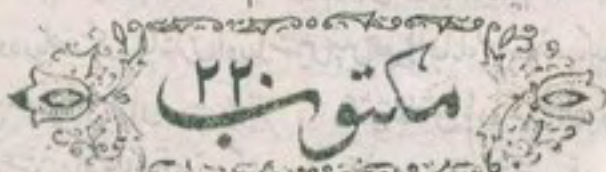 مکتوب ۲۲۰